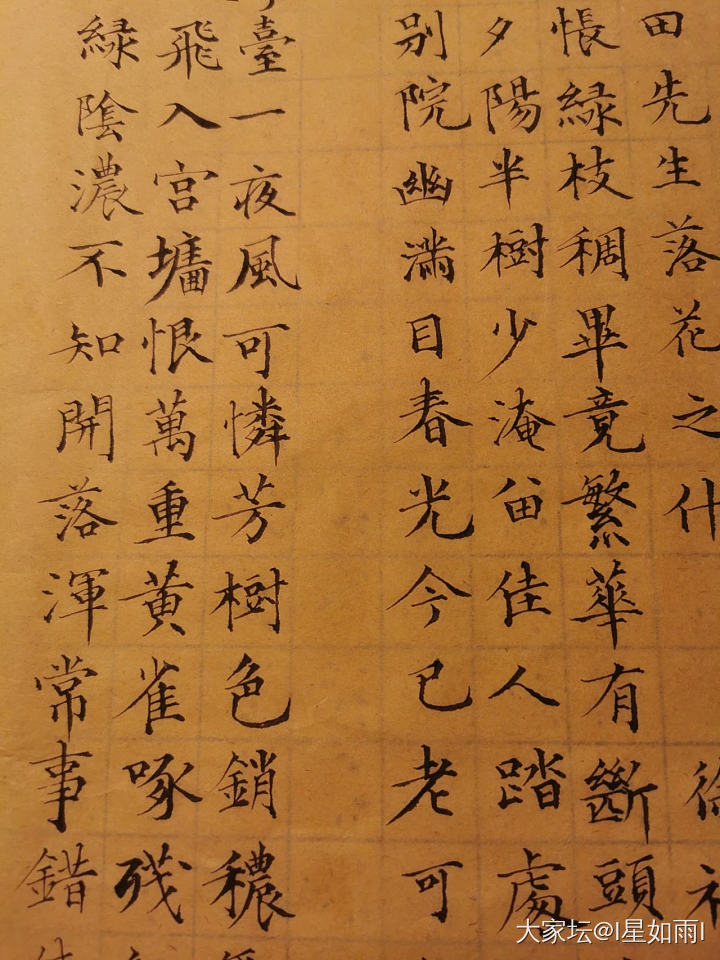 田先生落花之什
徐禎
悵綠枝稠畢竟繁華有斷頭
夕陽半樹少淹留佳人踏處
別院幽滿目春光今已老可
臺一夜風可憐芳樹色銷穠
飛入宮墻恨萬重黃雀啄殘
綠陰濃不知開落渾常事錯
大家坛@I星如雨I